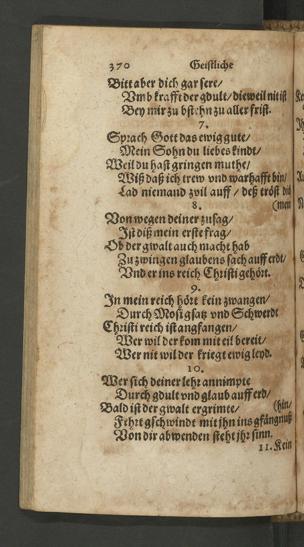 370 Geistliche
Bitt aber dich gar sere/
Vmb krafft der gdult/ dieweil nit ist
Bey mir zu bstehn zu aller frist.
7.
Sprach Gott das ewig gute/
Mein Sohn du liebes kindt/
Weil du hast gringen muthe/
Wiß daß ich trew vnd warhafft bin/
Lad niemand zvil auff/ deß tröst dich
8. (men
Von wegen deiner zusag/
Ist diß mein erste frag/
Ob der gwalt auch macht hab
Zu zwingen glaubens sach auff erdt/
Vnd er ins reich Christi gehört.
9.
In mein reich hört kein zwangen/
Durch Mosi gsatz vnd Schwerdt
Christi reich ist angfangen/
Wer wil der kom mit eil bereit/
Wer nit wil der kriegt ewig leyd.
10.
Wer sich deiner lehr annimpte
Durch gdult vnd glaub auff erd/
Bald ist der gwalt ergrimte/ (hin/
Fehrt gschwindt mit jhn ins gfängnuß
Von dir abwenden steht jhr sinn.
11. Kein